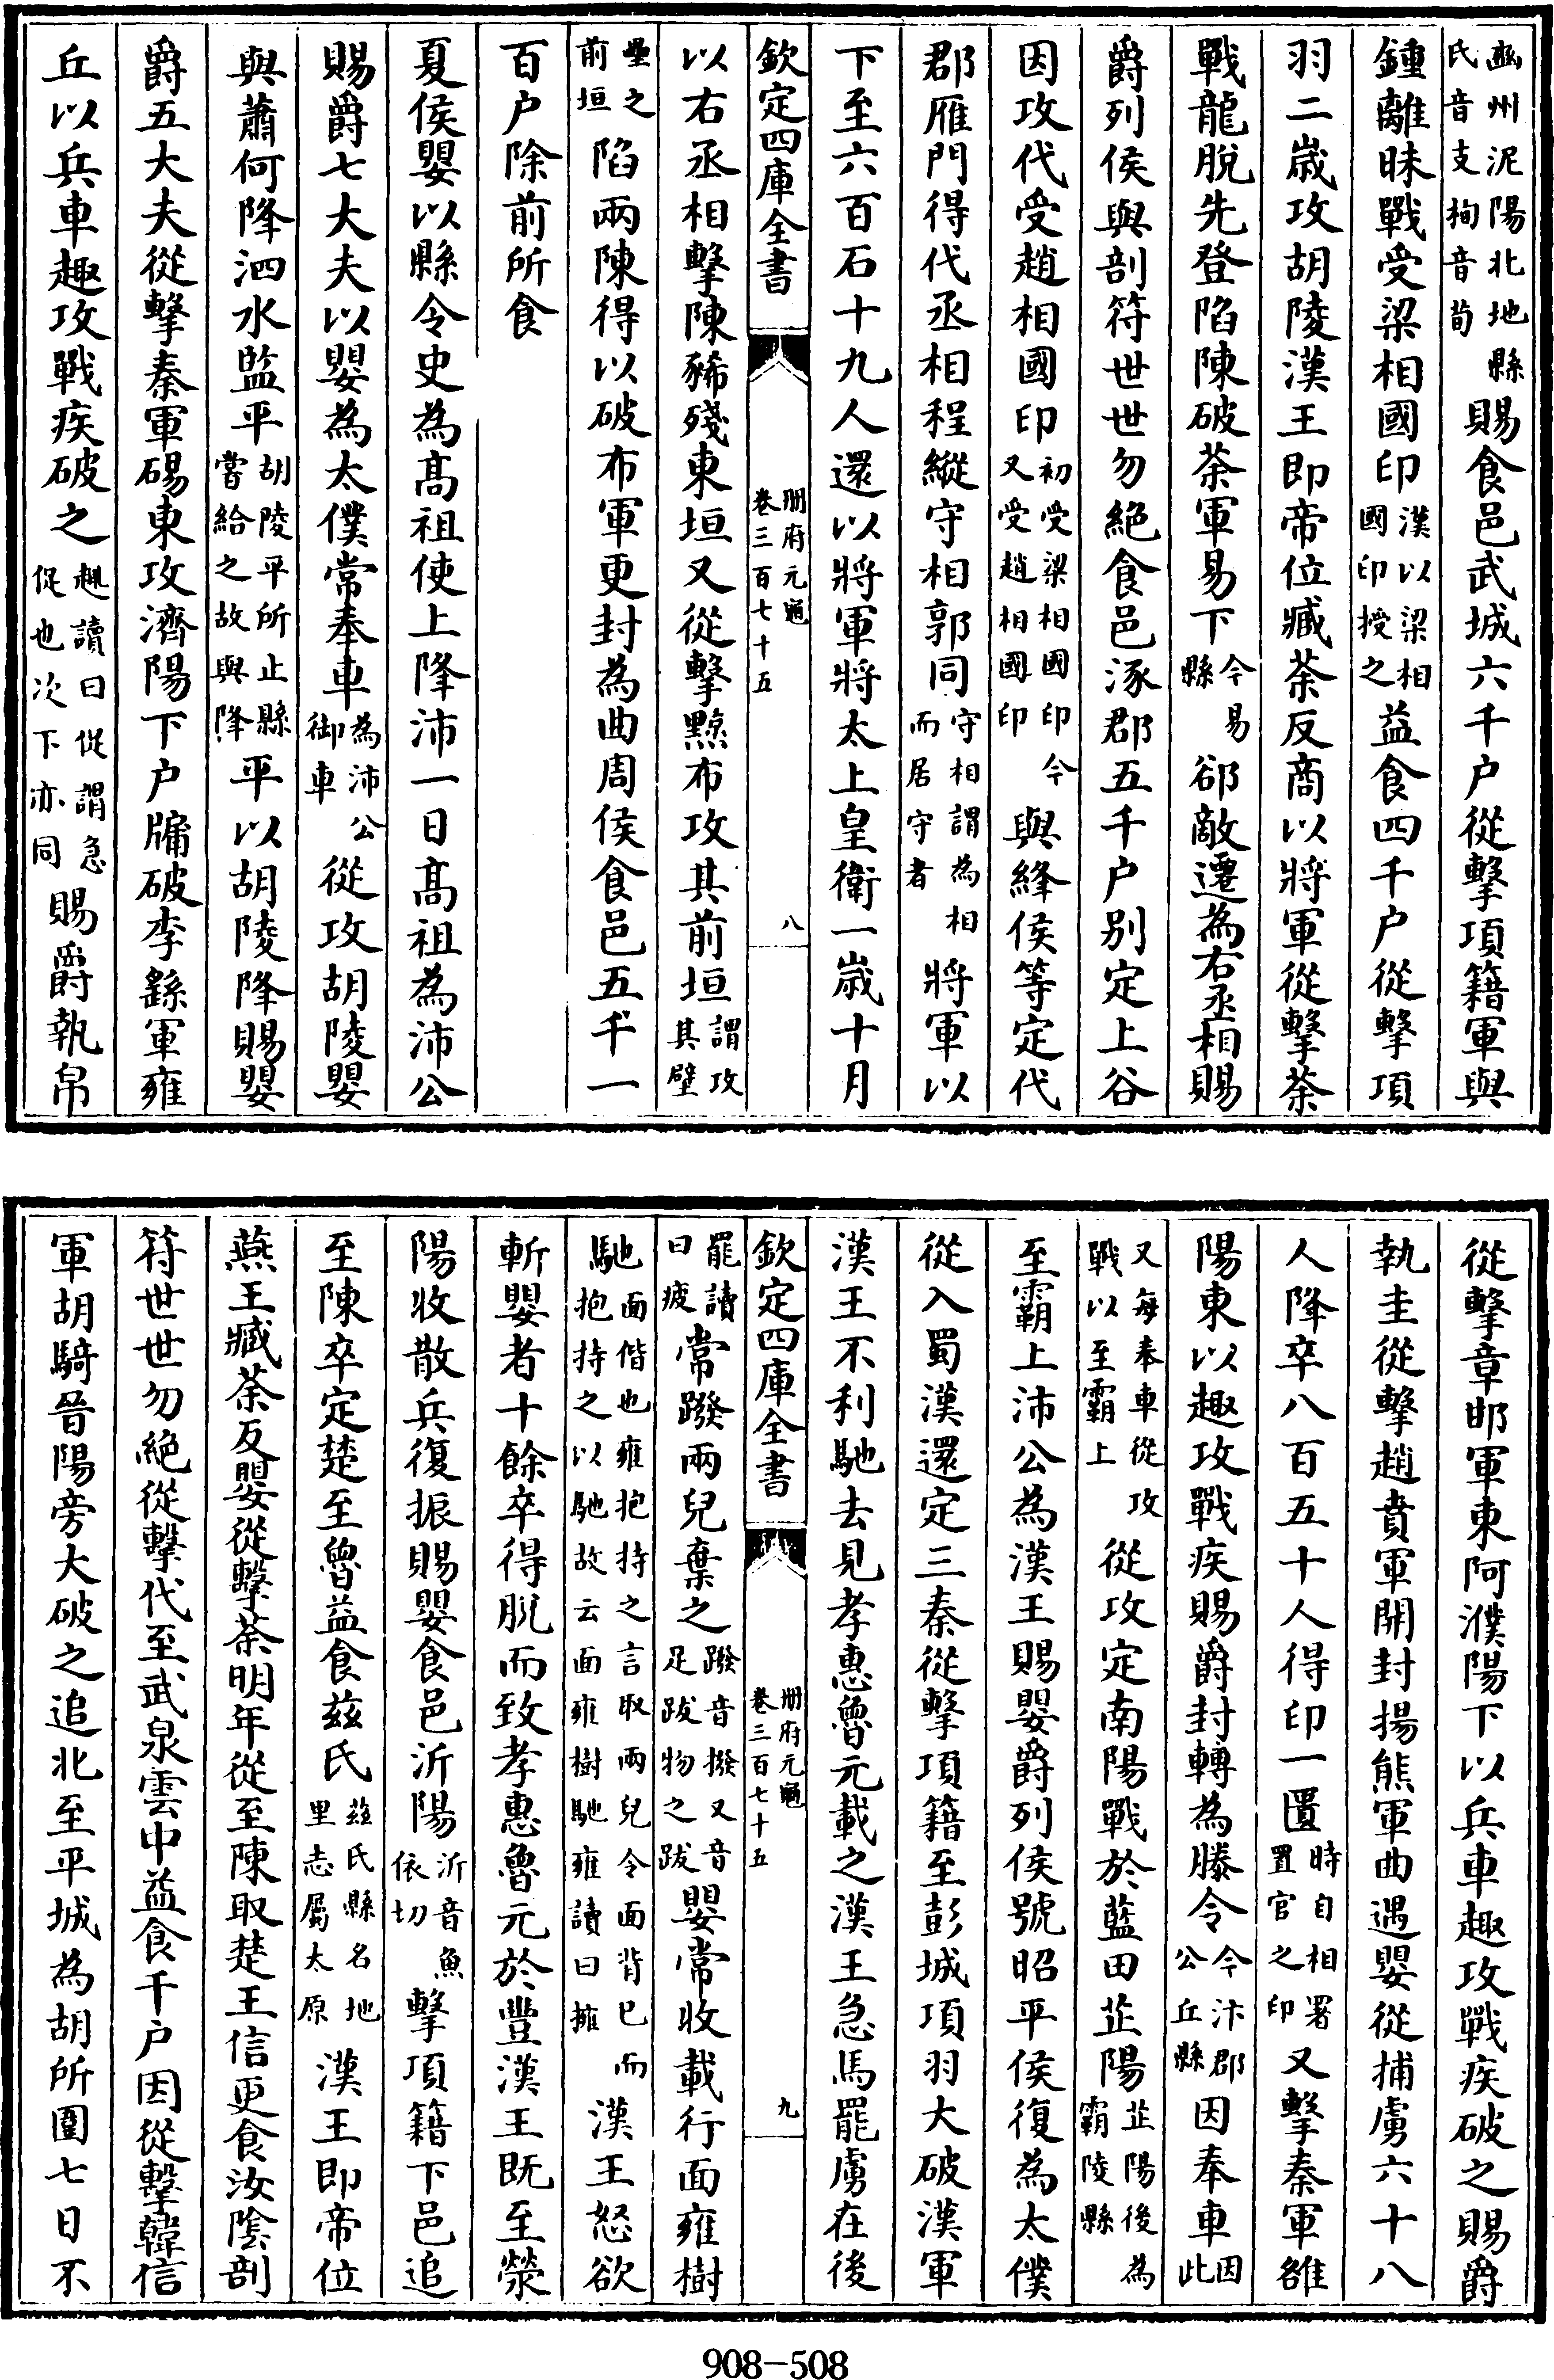 豳州泥陽北地縣氏音支栒音荀賜食邑武城六千户從擊項籍軍與
鍾離昧戰受梁相國印漢以梁相國印授之益食四千户從擊項
羽二歲攻胡陵漢王即帝位臧荼反商以將軍從擊荼
戰龍脫先登陷陳破荼軍易下今易縣郤敵遷為右丞相賜
爵列侯與剖符世世勿絶食邑涿郡五千户别定上谷
因攻代受趙相國印初受梁相國印今又受趙相國印與絳侯等定代
郡雁門得代丞相程縱守相郭同守相謂為相而居守者將軍以
下至六百石十九人還以將軍將太上皇衛一歲十月
欽定四庫全書 冊府元龜卷三百七十五 八
以右丞相擊陳豨殘東垣又從擊黥布攻其前垣謂攻其壁
壘之前垣陷兩陳得以破布軍更封為曲周侯食邑五千一
百户除前所食
夏侯嬰以縣令史為髙祖使上降沛一日髙祖為沛公
賜爵七大夫以嬰為太僕常奉車為沛公御車從攻胡陵嬰
與蕭何降泗水監平胡陵平所止縣嘗給之故與降平以胡陵降賜嬰
爵五大夫從擊秦軍碭東攻濟陽下户牖破李繇軍雍
丘以兵車趣攻戰疾破之趣讀曰促謂急促也次下亦同賜爵執帛
從擊章邯軍東阿濮陽下以兵車趣攻戰疾破之賜爵
執圭從擊趙賁軍開封揚熊軍曲遇嬰從捕虜六十八
人降卒八百五十人得印一匱時自相署置官之印又擊秦軍雒
陽東以趣攻戰疾賜爵封轉為滕令今汴郡公丘縣因奉車因此
又每奉車從攻戰以至霸上從攻定南陽戰於藍田芷陽芷陽後為霸陵縣
至霸上沛公為漢王賜嬰爵列侯號昭平侯復為太僕
從入蜀漢還定三秦從擊項籍至彭城項羽大破漢軍
漢王不利馳去見孝惠魯元載之漢王急馬罷虜在後
欽定四庫全書 冊府元龜卷三百七十五 九
罷讀曰疲常蹳兩兒棄之蹳音撥又音足跋物之跋嬰常收載行面雍樹
馳面偕也雍抱持之言取兩兒令面背已而抱持之以馳故云面雍樹馳雍讀曰擁漢王怒欲
斬嬰者十餘卒得脫而致孝惠魯元於豐漢王既至滎
陽收散兵復振賜嬰食邑沂陽沂音魚依切擊項籍下邑追
至陳卒定楚至魯益食兹氏兹氏縣名地里志屬太原漢王即帝位
燕王臧荼反嬰從擊荼明年從至陳取楚王信更食汝陰剖
符世世勿絶從擊代至武泉雲中益食千户因從擊韓信
軍胡騎晉陽旁大破之追北至平城為胡所圍七日不
908-508